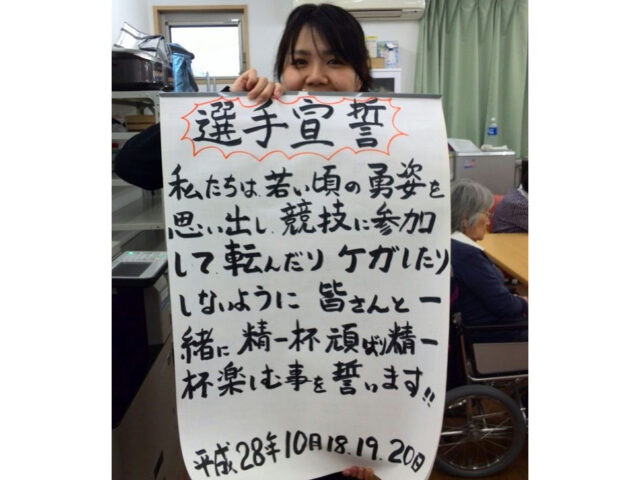 選手宣誓
私たちは、若い頃の勇姿を
思い出し、競技に参加
して、転んだり ケガしたり
しないように 皆さんと一
緒に 精一杯 頑ばり 精一
杯 楽しむ事を 誓います!!
平成28年10月18.19.20日